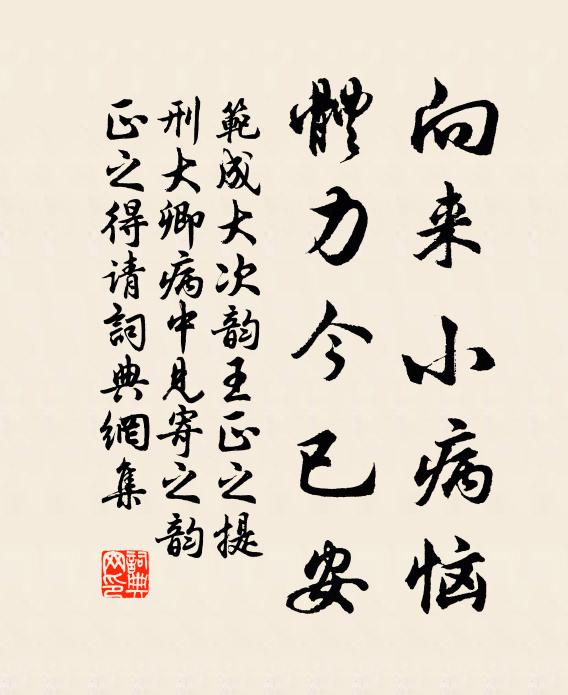 向来小病恼
體力今已安
範成大次韵王正之提
刑大卿病中見寄之韵
正之得请詞典網集
詞典
网印